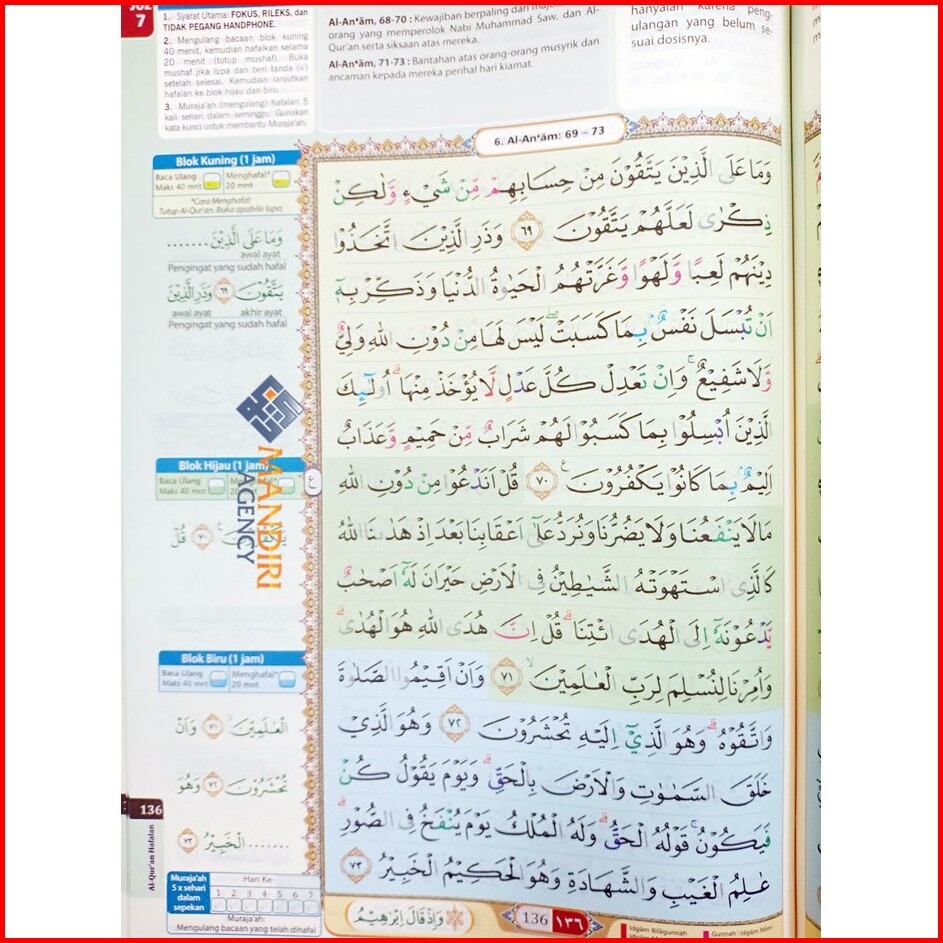 JUZ
7
1. Syarat Utama: FOKUS, RILEKS, dan
TIDAK PEGANG HANDPHONE.
2. Mengulang bacaan blok kuning
40 menit, kemudian hafalkan selama
20 menit (tutup mushaf). Buka
mushaf jika lupa dan beri tanda (√)
setelah selesai. Kemudian lanjutkan
hafalan ke blok hijau dan biru.
3. Muraja'ah (mengulang) hafalan 5
kali sehari dalam seminggu. Gunakan
kata kunci untuk membantu Muraja'ah.
Al-An'ām, 68-70 : Kewajiban berpaling dari
orang yang memperolok Nabi Muhammad Saw. dan Al-
Qur'an serta siksaan atas mereka.
Al-An'ām, 71-73 : Bantahan atas orang-orang musyrik dan
ancaman kepada mereka perihal hari kiamat.
hanyalah karena peng-
ulangan yang belum se-
suai dosisnya.
6. Al-An'ām: 69 – 73
وَمَا عَلَى الَّذِيْنَ يَتَّقُوْنَ مِنْ حِسَابِهِمْ مِّنْ شَيْءٍ وَّلٰكِنْ
ذِكْرٰى لَعَلَّهُمْ يَتَّقُوْنَ ٦٩ وَذَرِ الَّذِيْنَ اتَّخَذُوْا
دِيْنَهُمْ لَعِبًا وَّلَهْوًا وَّغَرَّتْهُمُ الْحَيٰوةُ الدُّنْيَا وَذَكِّرْ بِهٖٓ
اَنْ تُبْسَلَ نَفْسٌۢ بِمَا كَسَبَتْۖ لَيْسَ لَهَا مِنْ دُوْنِ اللّٰهِ وَلِيٌّ
وَّلَا شَفِيْعٌۚ وَاِنْ تَعْدِلْ كُلَّ عَدْلٍ لَّا يُؤْخَذْ مِنْهَاۗ اُولٰۤىِٕكَ
الَّذِيْنَ اُبْسِلُوْا بِمَا كَسَبُوْا لَهُمْ شَرَابٌ مِّنْ حَمِيْمٍ وَّعَذَابٌ
اَلِيْمٌۢ بِمَا كَانُوْا يَكْفُرُوْنَ ࣖ ٧٠ قُلْ اَنَدْعُوْا مِنْ دُوْنِ اللّٰهِ
مَا لَا يَنْفَعُنَا وَلَا يَضُرُّنَا وَنُرَدُّ عَلٰٓى اَعْقَابِنَا بَعْدَ اِذْ هَدٰىنَا اللّٰهُ
كَالَّذِى اسْتَهْوَتْهُ الشَّيٰطِيْنُ فِى الْاَرْضِ حَيْرَانَ لَهٗٓ اَصْحٰبٌ
يَّدْعُوْنَهٗٓ اِلَى الْهُدَى ائْتِنَاۗ قُلْ اِنَّ هُدَى اللّٰهِ هُوَ الْهُدٰىۗ
وَاُمِرْنَا لِنُسْلِمَ لِرَبِّ الْعٰلَمِيْنَۙ ٧١ وَاَنْ اَقِيْمُوا الصَّلٰوةَ
وَاتَّقُوْهُۗ وَهُوَ الَّذِيْٓ اِلَيْهِ تُحْشَرُوْنَ ٧٢ وَهُوَ الَّذِيْ
خَلَقَ السَّمٰوٰتِ وَالْاَرْضَ بِالْحَقِّۗ وَيَوْمَ يَقُوْلُ كُنْ
فَيَكُوْنُۚ قَوْلُهُ الْحَقُّۗ وَلَهُ الْمُلْكُ يَوْمَ يُنْفَخُ فِى الصُّوْرِۗ
عٰلِمُ الْغَيْبِ وَالشَّهَادَةِ وَهُوَ الْحَكِيْمُ الْخَبِيْرُ ٧٣
Blok Kuning (1 jam)
Baca Ulang Menghafal*
Maks 40 mnt 20 mnt
*Cara Menghafal:
Tutup Al-Qur'an, Buka apabila lupa.
وَمَا عَلَى الَّذِيْنَ.......
awal ayat
Pengingat yang sudah hafal
يَتَّقُوْنَ ٦٩ وَذَرِ الَّذِيْنَ
awal ayat akhir ayat
Pengingat yang sudah hafal
MANDIRI
AGENCY
Blok Hijau (1 jam)
Baca Ulang
Maks 40 mnt 20 mnt
ع
يَكْفُرُوْنَ ࣖ ٧٠ قُلْ
Blok Biru (1 jam)
Baca Ulang Menghafal*
Maks 40 mnt 20 mnt
الْعٰلَمِيْنَۙ ٧١ وَاَنْ
تُحْشَرُوْنَ ٧٢ وَهُوَ
....... الْخَبِيْرُ ٧٣
136
Al-Qur'an Hafalan
Muraja'ah
5 x sehari
dalam
sepekan
Hari Ke-
1 2 3 4 5 6 7
Muraja'ah:
Mengulang bacaan yang telah dihafal
وَاِذْ قَالَ اِبْرٰهِيْمُ
136 ١٣٦
Idgām Bilāgunnah
Gunnah : Idgām Mimi